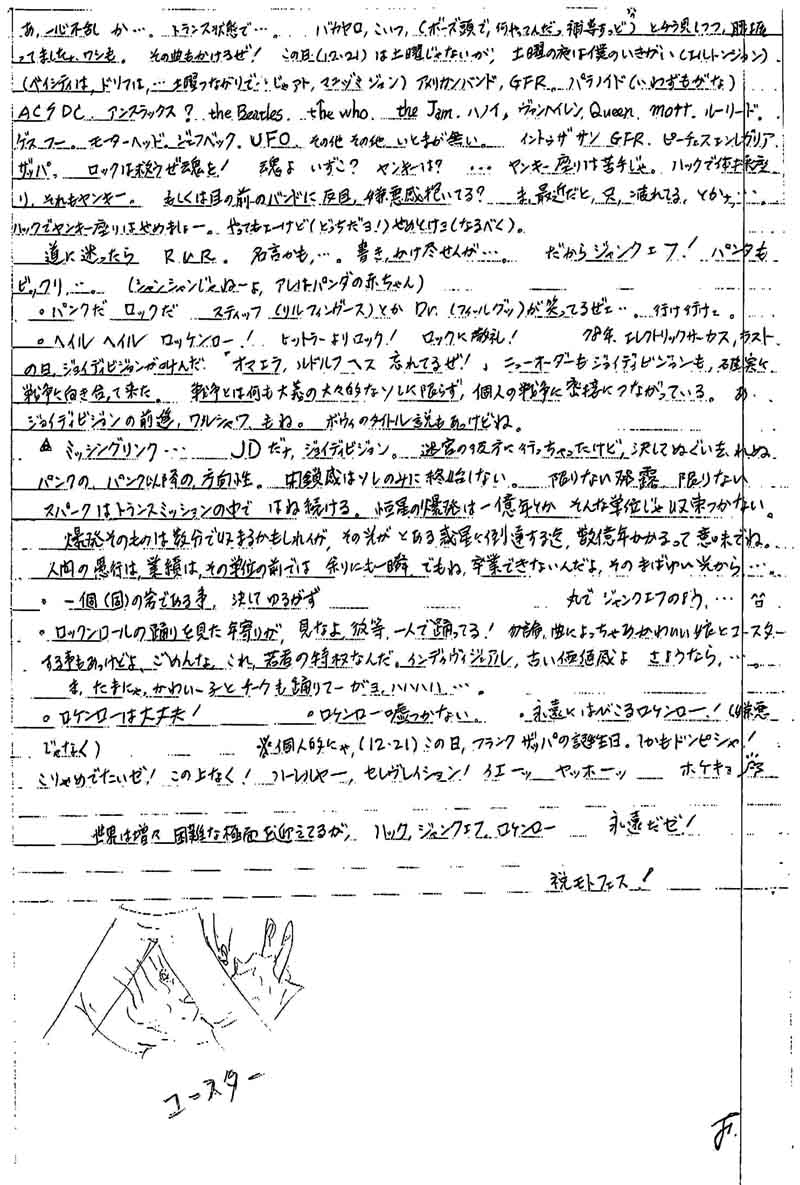 あ、一心不乱 か…。トランス状態で…。 バカヤロ、こいつ、(ボーズ頭で、何やってんだっ、補導すっど)とチラ見しつつ、腰振
ってましたょ、ワシも。 その曲もかけるぜ! この日(12・21)は土曜じゃないが、土曜の夜は僕のいきがい(エルトンジョン)
(ベイシティは、ドリフは、… 土曜つながりで… じゃアト、マチヅキ ジョン) アメリカンバンド、GFR パラノイド(いわずもがな)
AC⚡DC. アンスラックス? the Beatles. the who. the Jam. ハノイ, ヴァンヘイレン, Queen. mott. ルーリード。
ゲス フー。モーターヘッド。ジェフベック。UFO. その他 その他 いとまが無い。 イントゥザサン GFR. ピーチェスエンレガリア
ザッパ。 ロックは救うぜ魂を! 魂よ いずこ? ヤンキーは? … ヤンキー座りは苦手じゃ。ハックで体
り、それもヤンキー。 もしくは目の前のバンドに反目、嫌悪感抱いてる? ま、最近だと、只、疲れてる、とかナ…。
ハックでヤンキー座りはやめましょー。やってもエーけど(どっちだヨ!)やめとけョ(なるべく)。
道に迷ったら R.n.R. 名言かも、…。 書き、かけ尽せんが…。 だからジャンクェフ! パンダも
ビックリ、…。 (シャンシャンじゃねーよ、アレはパンダの赤ちゃん)
。パンクだ ロックだ スティッフ (リルフィンガース)とか Dr. (フィールグッ)が笑ってるぜェ…。行け行けェ。
。ヘイル ヘイル ロッケンロー! ヒットラーよりロック! ロックに敬礼! 78年、エレクトリックサーカス、ラスト
の日、ジョイディビジョンが叫んだ「オマエラ、ルドルフ ヘス 忘れてるぜ!」ニューオーダーもジョイディビジョンも、確実に
戦争と向き合って来た。 戦争とは何も大義の大々的なソレに限らず、個人の戦争に密接につながっている。 あ
ジョイディビジョンの前進、ワルシャワ もね。 ボウィのタイトル説もあっけどね。
ミッシングリンク… JDだナ、ジョイディビジョン。 迷宮の彼方に行っちゃったけど、決してぬぐい去れぬ
パンクの、パンク以降の、方向性。 閉鎖感はソレのみに終始しない。 限りない発露 限りない
スパークはトランスミッションの中で はね続ける。 恒星の爆発は一億年とか そんな単位じゃ収束つかない。
爆発そのものは数分で収まるかもしれんが、その光が とある惑星に到達する迄、数億年かかるって意味でね。
人間の愚行は、業績は、その単位の前では 余りにも一瞬、でもね、卒業できないんだよ、そのまばゆい光から…。
。一個(箇)の害である事、決してゆるがず 丸で ジャンクェフのよう、…
。ロックンロールの踊りを見た年寄りが、見なよ、彼等、一人で踊ってる! 勿論、曲によっちゃあかわいい娘とユースター
する事もあっけどよ、ごめんナょ、これ、若者の特権なんだ。インディヴィジュアル、古い価値感よ さようなら、…。
ま、たまにゃ、かわいー子と チークも踊りてーがヨ、ハハハハ…。
。ロケンローは大丈夫! 。ロケンロー嘘つかない。 。永遠にはびこるロケンロー!(嫌悪
じゃなく) ※個人的にゃ、(12・21)この日、フランク ザッパの誕生日。しかもドンピシャ!
こりゃめでたいぜ! この上なく! ハーレルヤー、セレヴレイション! イエーッ ヤッホーッ ホケキョ
世界は増々 困難な極面を迎えてるが、 ハック、ジャンクェフ、ロケンロー 永遠だゼ!
祝モトフェス!
ユースター